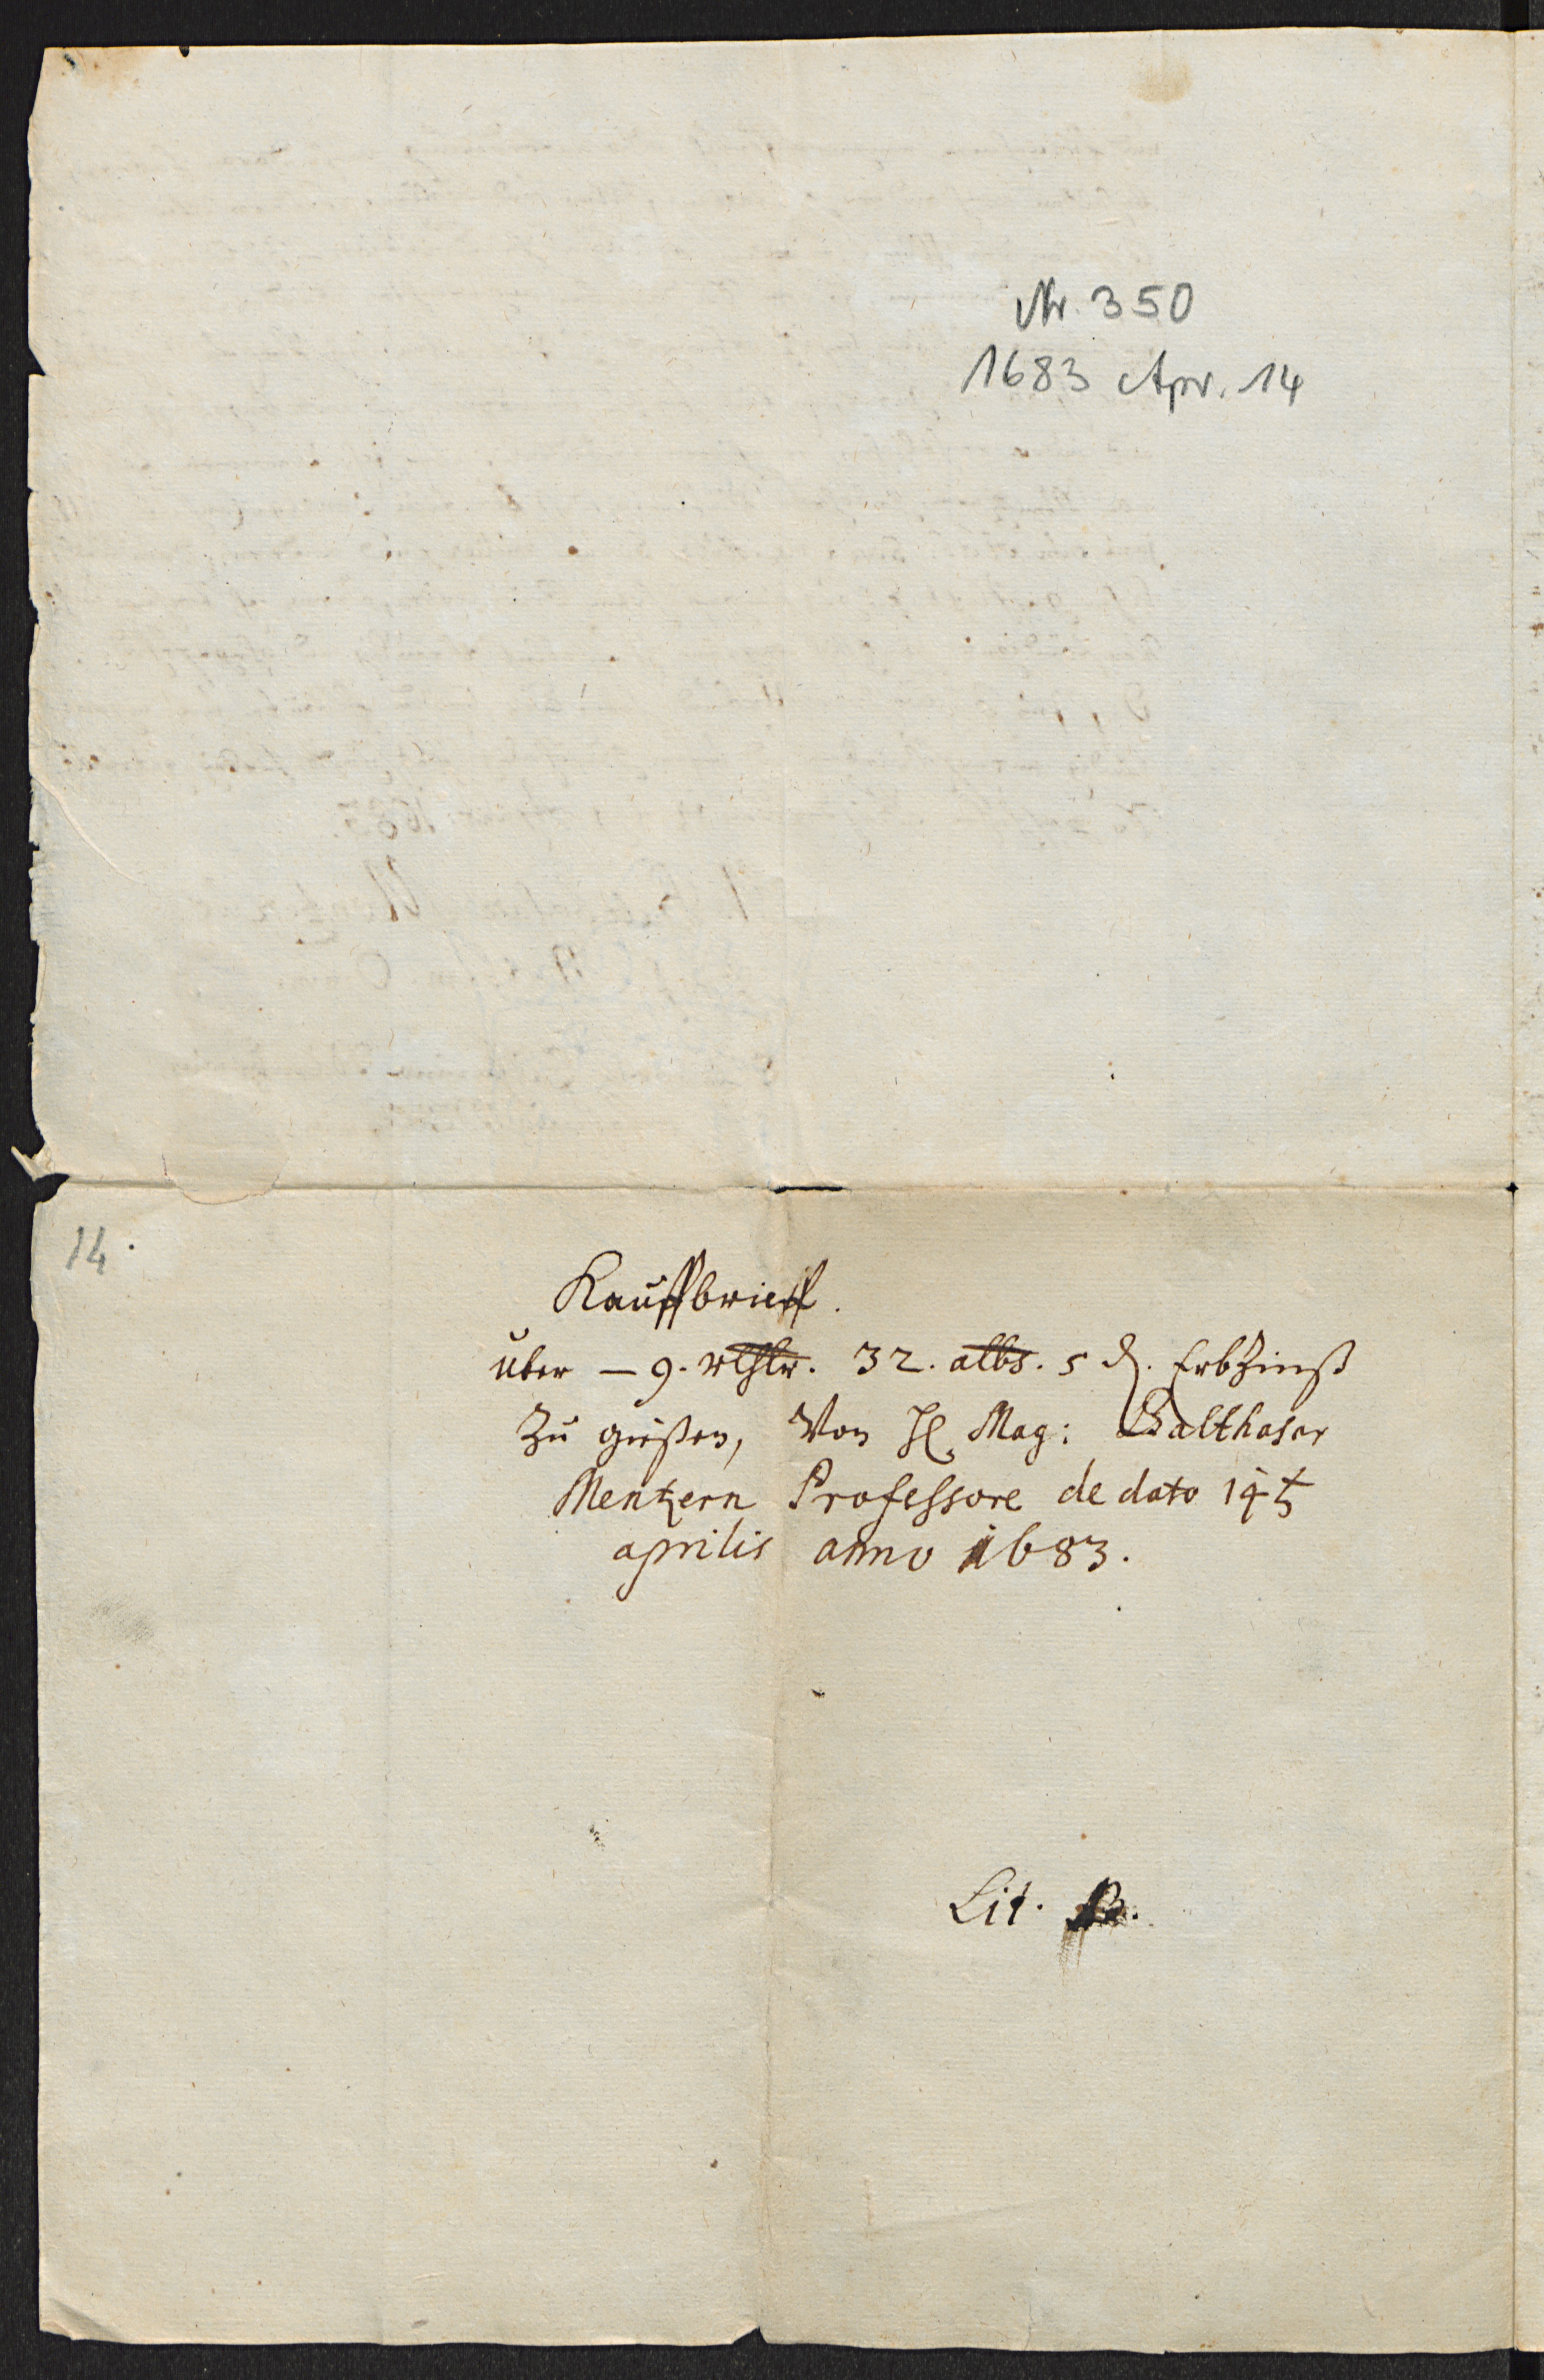 Nr. 350
1683 Apr. 14
14.
Kauffbrieff.
über – 9. rthlr. 32. albs. 5 ₰. Erbzinß
zu gießen, Von H. Mag: Balthasar
Mentzern Professore de dato 14t
aprilis anno 1683.
Lit. B.